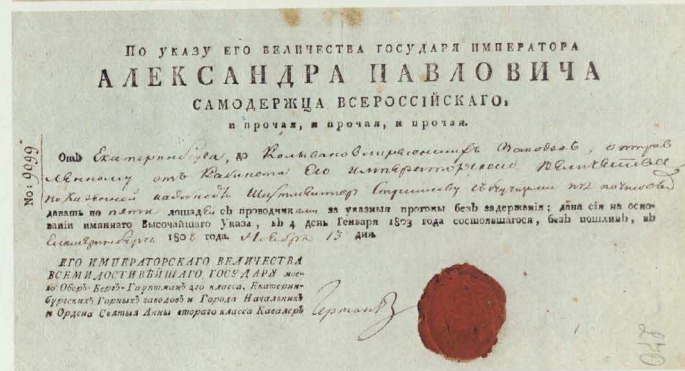 По указу его величества государя императора
АЛЕКСАНДРА ПАВЛОВИЧА
САМОДЕРЖЦА ВСЕРОССІЙСКАГО,
и прочая, и прочая, и прочая.
No: 9099
Отъ Екатеринбурга, до Колывановоскресенскихъ Заводовъ, отправ
ленному отъ Кабинета Его Императорскаго Величества
по казенной надобности
давать по пяти лошадей съ проводниками за указныя прогоны безъ задержанія; дана сія на осно-
ваніи имяннаго Высочайшаго Указа, въ 4 день Генваря 1803 года состоявшагося, безъ пошлинъ, въ
Екатеринбурге 1808 года. Ноября 13 дня.
ЕГО ИМПЕРАТОРСКАГО ВЕЛИЧЕСТВА
ВСЕМИЛОСТИВѢЙШАГО ГОСУДАРЯ мое-
го Оберъ-Бергъ-Гауптманъ 4го класса, Екатерин-
бургскихъ Горныхъ заводовъ и Города Начальникъ
и Ордена Святыя Анны втораго класса Кавалеръ Германъ